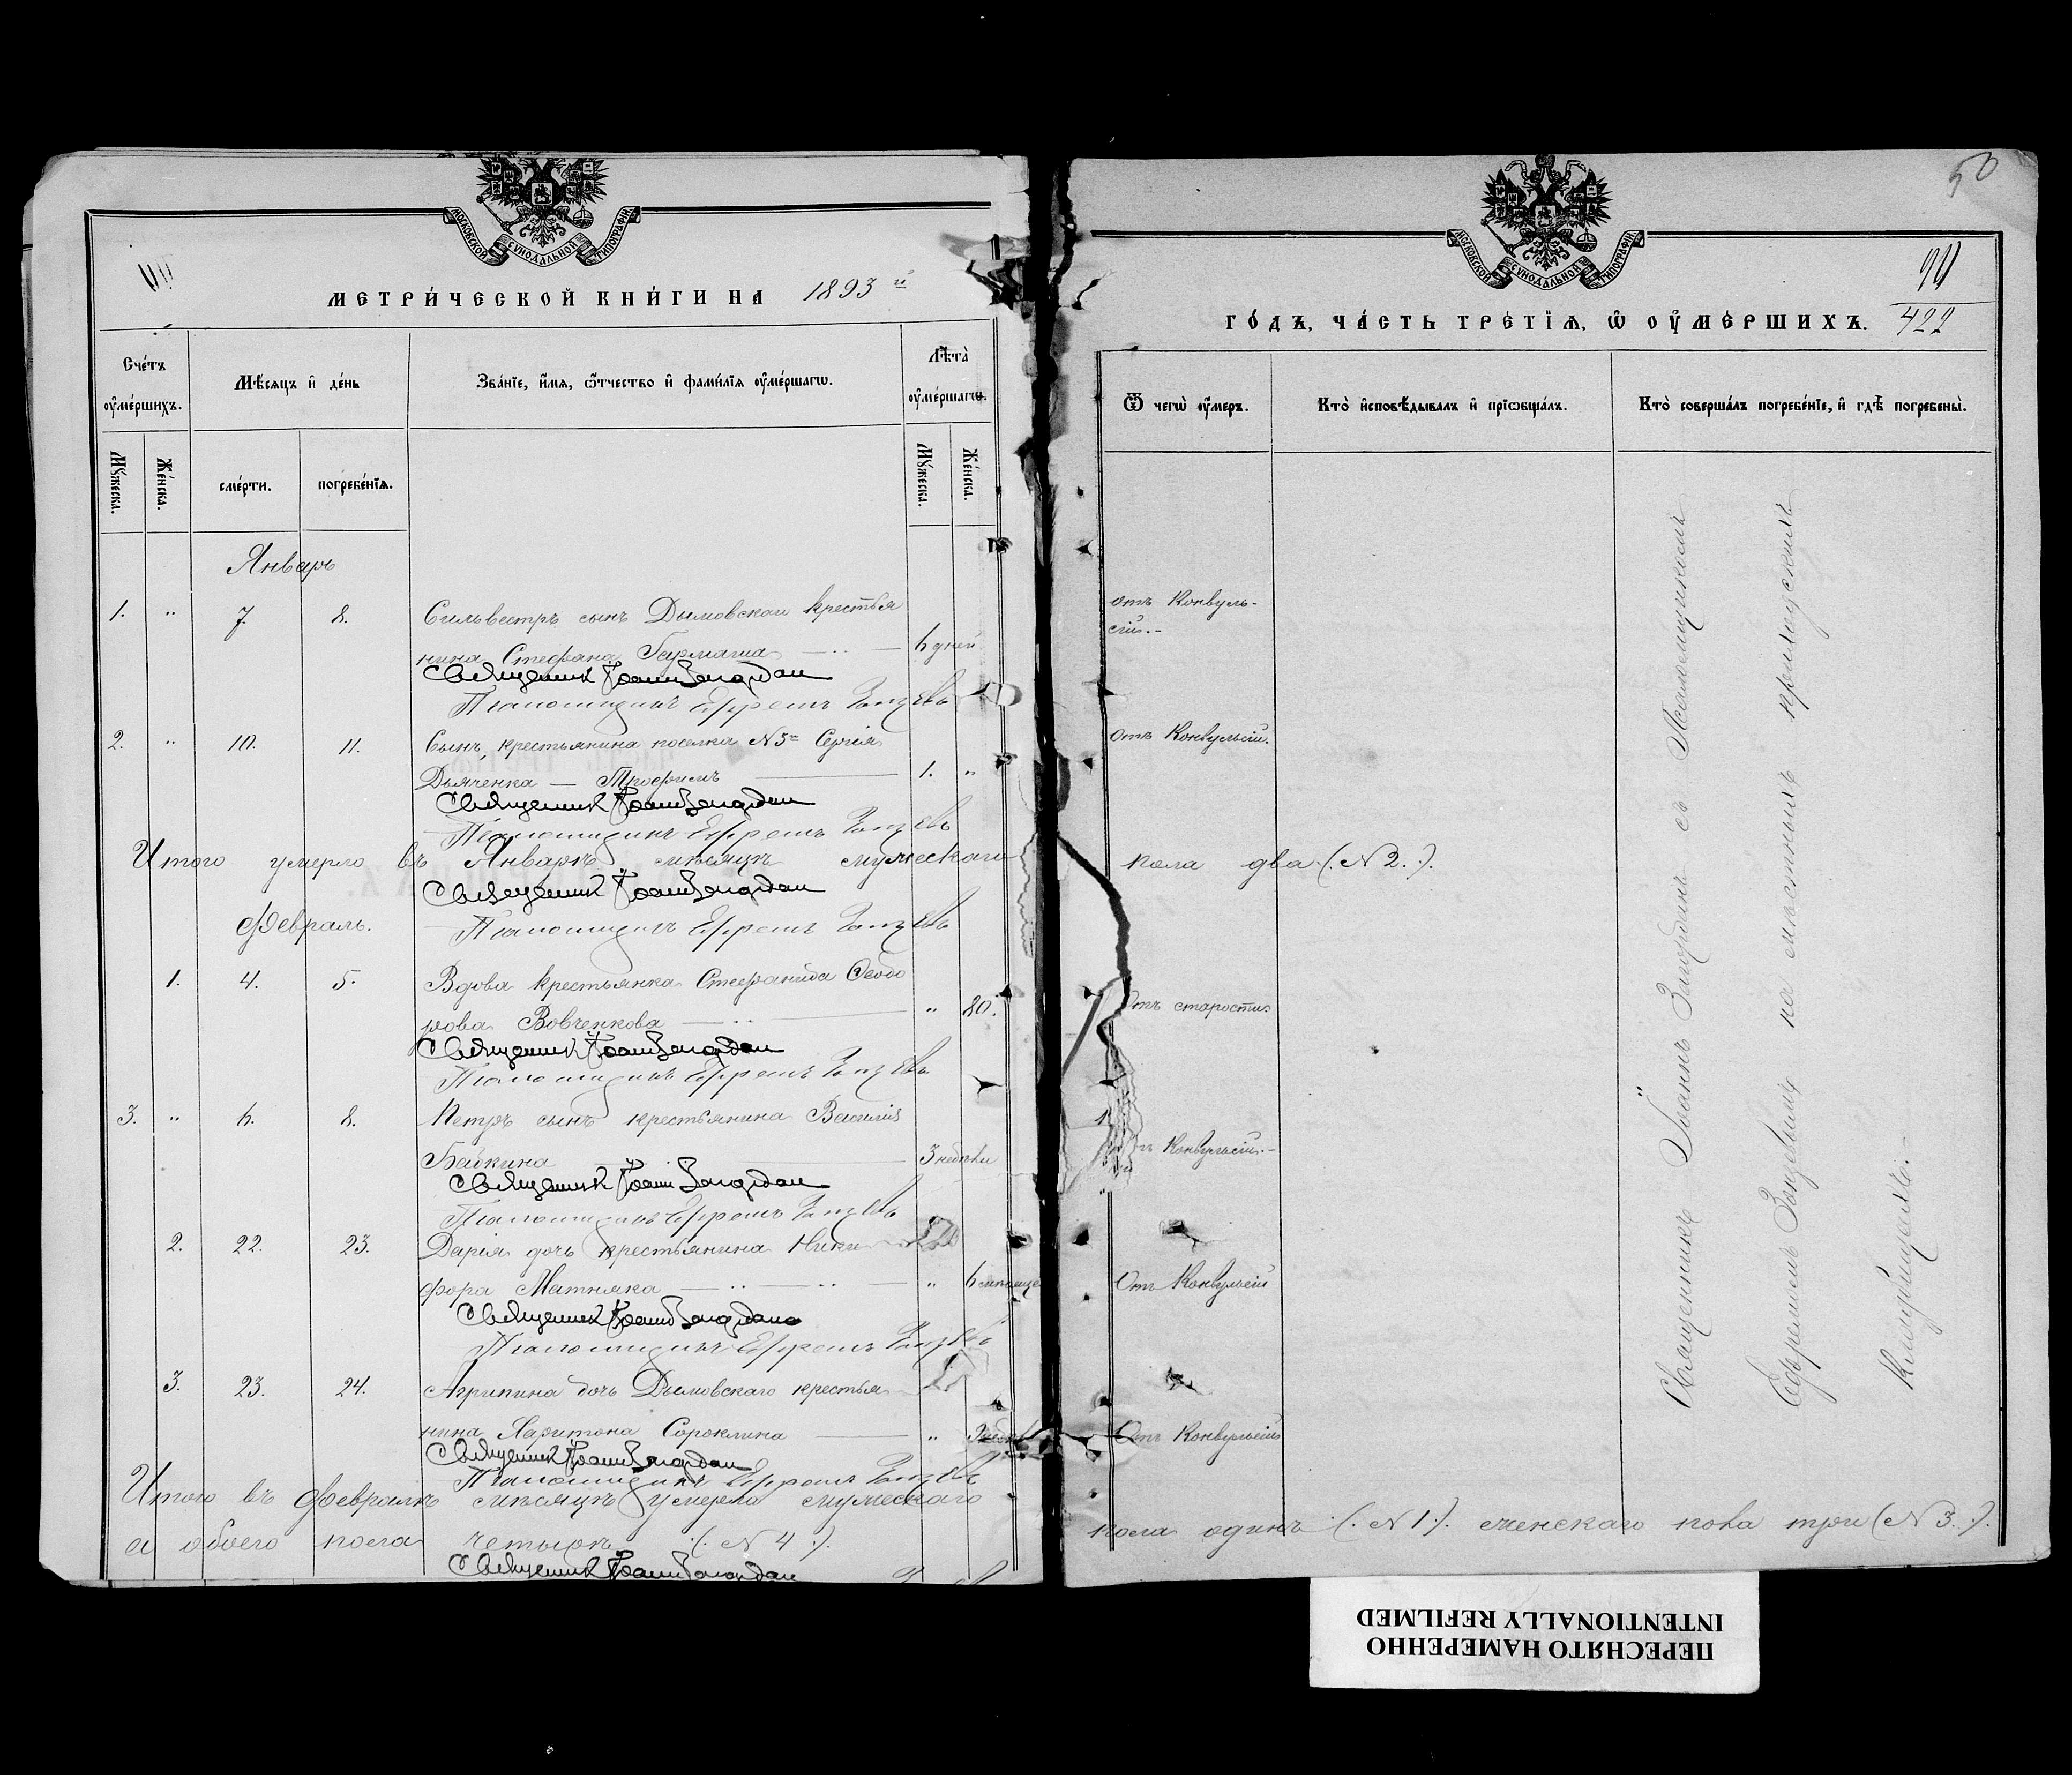 МОСКОВСКОЙ СУНОДАЛЬНОЙ ТИПОГРАФІИ
МЕТРИ́ЧЕСКОЙ КНИ́ГИ НА 1893 й
Сче́тъ ᲂу҆ме́ршихъ.
Мѣ́сяцъ и҆ де́нь
Зва́нїе, и҆́мя, ѻ҆́тчество и҆ фами́лїя ᲂу҆ме́ршагѡ.
Лѣ̑та ᲂу҆ме́ршагѡ.
Мꙋ́жеска.
Же́нска.
сме́рти.
погребе́нїя.
Мꙋ́жеска.
Же́нска.
Январь
1. " 7. 8. Сильвестръ сынъ Дымовскаго крестья
нина Стефана Гармаша 6 дней
Священникъ Іоаннъ Загордан
Псаломщикъ Ефремъ
2. " 10. 11. Сынъ крестьянина поселка N 5 Сергія
Дьяченка — Трофимъ — 1. "
Священникъ Іоаннъ
Псаломщикъ Ефремъ
Итого умерло въ Январѣ мѣсяцѣ мужескаго
Священникъ Іоаннъ
Февраль.
Псаломщикъ Ефремъ
1. 4. 5. Вдова крестьянка Стефанида Ѳеодо
рова Вовченкова — " 80.
Священникъ Іоаннъ
Псаломщикъ Ефремъ
3. " 6. 8. Петръ сынъ крестьянина Василія
Бабкина 3 недѣли
Священникъ Іоаннъ
Псаломщикъ Ефремъ
2. 22. 23. Дарія дочь крестьянина Ники
фора Матняка — " 6 мѣсяце
Священникъ Іоаннъ
Псаломщикъ Ефремъ
3. 23. 24. Агрипина дочь Дымовскаго крестья
нина Харитона Сороклина — "
Священникъ Іоаннъ
Псаломщикъ Ефремъ
Итого въ Февралѣ мѣсяцѣ умерло мужескаго
а обоего пола четыре (. N 4 .).
Священникъ Іоаннъ
50
МОСКОВСКОЙ СУНОДАЛЬНОЙ ТИПОГРАФІИ
ГО́ДЪ, ЧА́СТЬ ТРЕ́ТЇЯ, Ѡ҆ ОУ҆МЕ́РШИХЪ.
422
Ѿ чегѡ̀ ᲂу҆́меръ.
Кто̀ и҆сповѣ́дывалъ и҆ прїѡбща́лъ.
Кто̀ соверша́лъ погребе́нїе, и҆ гдѣ̀ погребены̀.
отъ Конвуль-
сій.-
отъ Конвульсій.
пола два (. N 2. .).
Отъ старости.
Конвульсій.-
Отъ Конвульсій
Отъ Конвульсій
пола одинъ (. N 1 .). женскаго пола три (N 3. .).
Священникъ Іоаннъ съ Псаломщикомъ
Ефремомъ на мѣстномъ приходскомъ
Кладбищѣ.-
ПЕРЕСНЯТО НАМЕРЕННО
INTENTIONALLY REFILMED